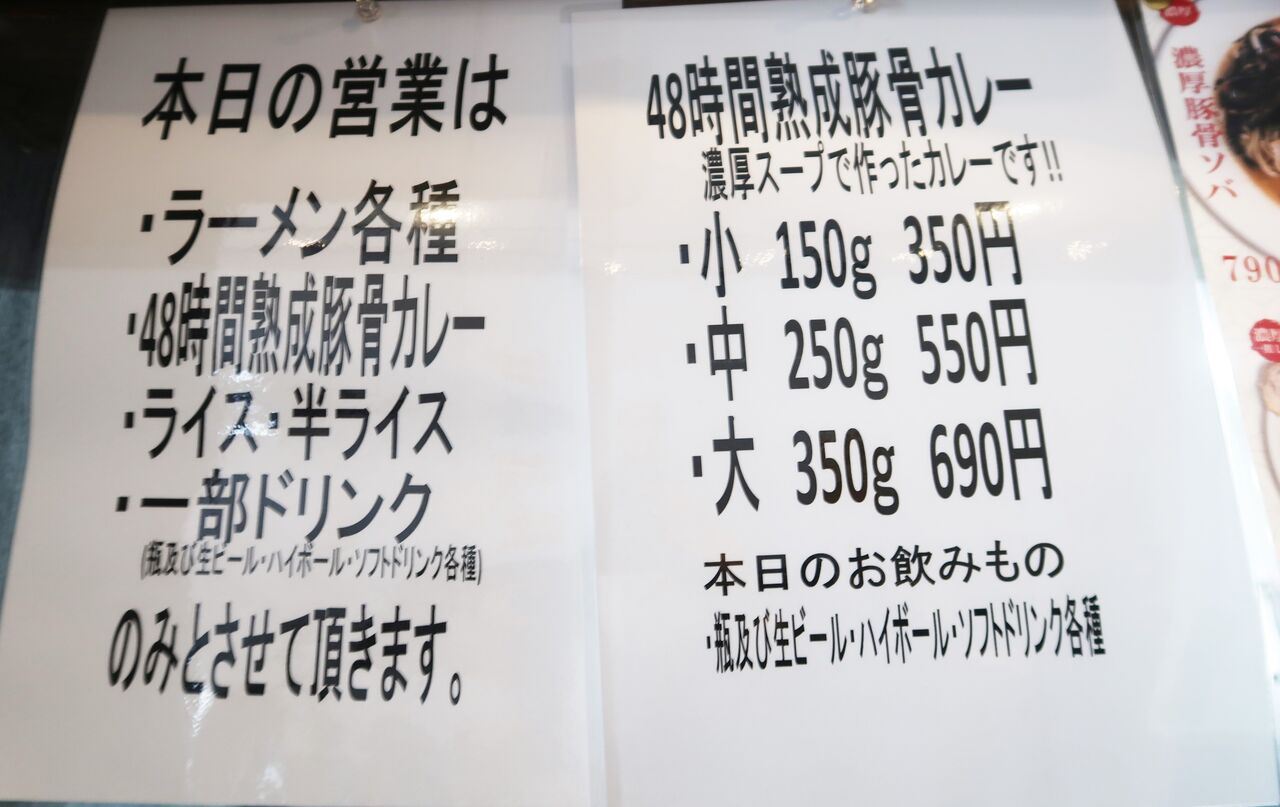 本日の営業は
・ラーメン各種
・48時間熟成豚骨カレー
・ライス・半ライス
・一部ドリンク
(瓶及び生ビール・ハイボール・ソフトドリンク各種)
のみとさせて頂きます。
48時間熟成豚骨カレー
濃厚スープで作ったカレーです!!
・小 150g 350円
・中 250g 550円
・大 350g 690円
本日のお飲みもの
・瓶及び生ビール・ハイボール・ソフトドリンク各種
濃厚
濃厚豚骨ソバ
790
濃厚